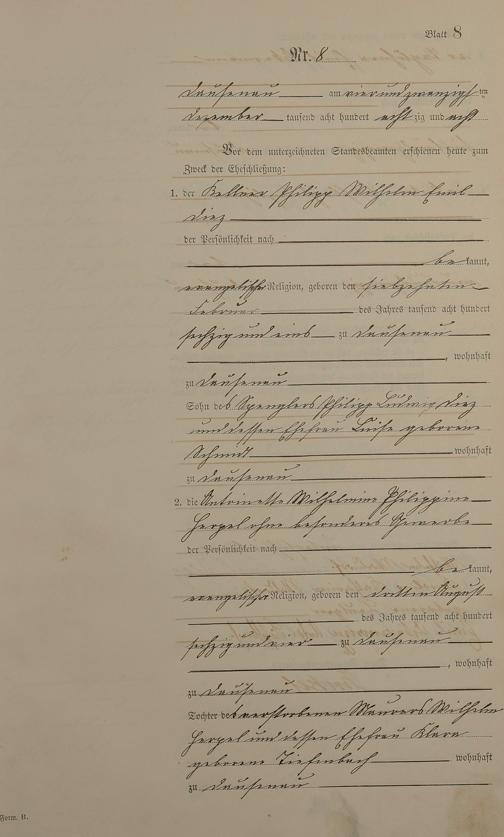 Blatt 8
Nr. 8
Dausenau am vierundzwanzigsten
Dezember tausend acht hundert achtzig und acht
Vor dem unterzeichneten Standesbeamten erschienen heute zum
Zweck der Eheschließung:
1. der Kellner Philipp Wilhelm Emil
Diez
der Persönlichkeit nach
be kannt,
evangelischer Religion, geboren den siebzehnten
Februar des Jahres tausend acht hundert
sechzig und eins zu Dausenau
, wohnhaft
zu Dausenau
Sohn des Spenglers Philipp Ludwig Diez
und dessen Ehefrau Luise geborene
Schmidt wohnhaft
zu Dausenau
2. die Antoinette Wilhelmine Philippine
Herpel ohne besonderes Gewerbe
der Persönlichkeit nach
be kannt,
evangelischer Religion, geboren den dritten August
des Jahres tausend acht hundert
sechzig und vier zu Dausenau
, wohnhaft
zu Dausenau
Tochter des verstorbenen Maurers Wilhelm
Herpel und dessen Ehefrau Klara
geborene Tiefenbach wohnhaft
zu Dausenau
Form. B.